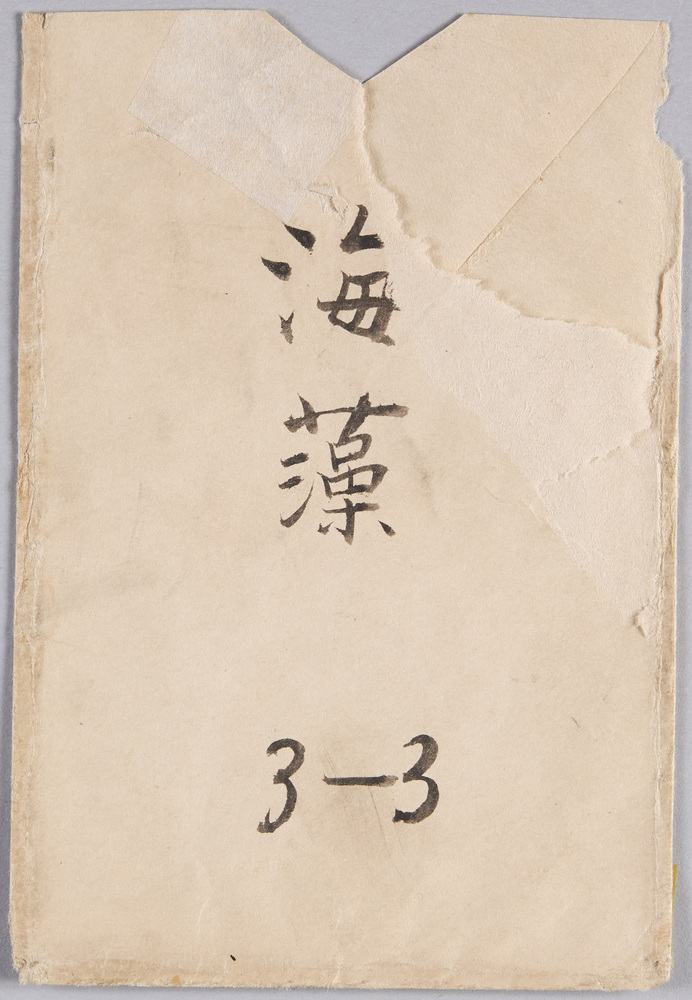 海藻
3-3